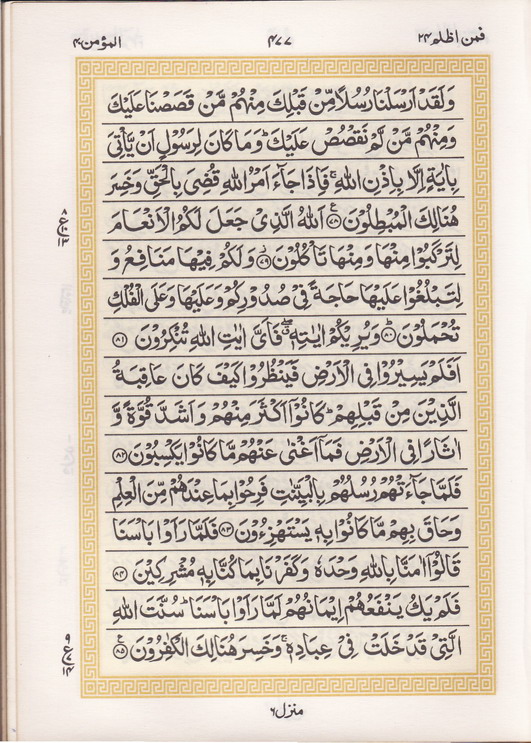 المؤمن ۴۰ ۴۷۷ فمن اظلم ۲۴
وَلَقَدْ اَرْسَلْنَا رُسُلًا مِّنْ قَبْلِكَ مِنْهُمْ مَّنْ قَصَصْنَا عَلَيْكَ
وَمِنْهُمْ مَّنْ لَّمْ نَقْصُصْ عَلَيْكَ ؕ وَمَا كَانَ لِرَسُوْلٍ اَنْ يَّاْتِيَ
بِاٰيَةٍ اِلَّا بِاِذْنِ اللّٰهِ ۚ فَاِذَا جَآءَ اَمْرُ اللّٰهِ قُضِيَ بِالْحَقِّ وَخَسِرَ
هُنَالِكَ الْمُبْطِلُوْنَ ﴿۷۸﴾ اَللّٰهُ الَّذِيْ جَعَلَ لَكُمُ الْاَنْعَامَ
لِتَرْكَبُوْا مِنْهَا وَمِنْهَا تَاْكُلُوْنَ ﴿۷۹﴾ وَلَكُمْ فِيْهَا مَنَافِعُ وَ
لِتَبْلُغُوْا عَلَيْهَا حَاجَةً فِيْ صُدُوْرِكُمْ وَعَلَيْهَا وَعَلَى الْفُلْكِ
تُحْمَلُوْنَ ﴿۸۰﴾ وَيُرِيْكُمْ اٰيٰتِهٖ ۖ فَاَيَّ اٰيٰتِ اللّٰهِ تُنْكِرُوْنَ ﴿۸۱﴾
اَفَلَمْ يَسِيْرُوْا فِي الْاَرْضِ فَيَنْظُرُوْا كَيْفَ كَانَ عَاقِبَةُ
الَّذِيْنَ مِنْ قَبْلِهِمْ ؕ كَانُوْۤا اَكْثَرَ مِنْهُمْ وَاَشَدَّ قُوَّةً وَّ
اٰثَارًا فِي الْاَرْضِ فَمَاۤ اَغْنٰى عَنْهُمْ مَّا كَانُوْا يَكْسِبُوْنَ ﴿۸۲﴾
فَلَمَّا جَآءَتْهُمْ رُسُلُهُمْ بِالْبَيِّنٰتِ فَرِحُوْا بِمَا عِنْدَهُمْ مِّنَ الْعِلْمِ
وَحَاقَ بِهِمْ مَّا كَانُوْا بِهٖ يَسْتَهْزِءُوْنَ ﴿۸۳﴾ فَلَمَّا رَاَوْا بَاْسَنَا
قَالُوْۤا اٰمَنَّا بِاللّٰهِ وَحْدَهٗ وَكَفَرْنَا بِمَا كُنَّا بِهٖ مُشْرِكِيْنَ ﴿۸۴﴾
فَلَمْ يَكُ يَنْفَعُهُمْ اِيْمَانُهُمْ لَمَّا رَاَوْا بَاْسَنَا ؕ سُنَّتَ اللّٰهِ
الَّتِيْ قَدْ خَلَتْ فِيْ عِبَادِهٖ ۚ وَخَسِرَ هُنَالِكَ الْكٰفِرُوْنَ ﴿۸۵﴾
منزل ۶